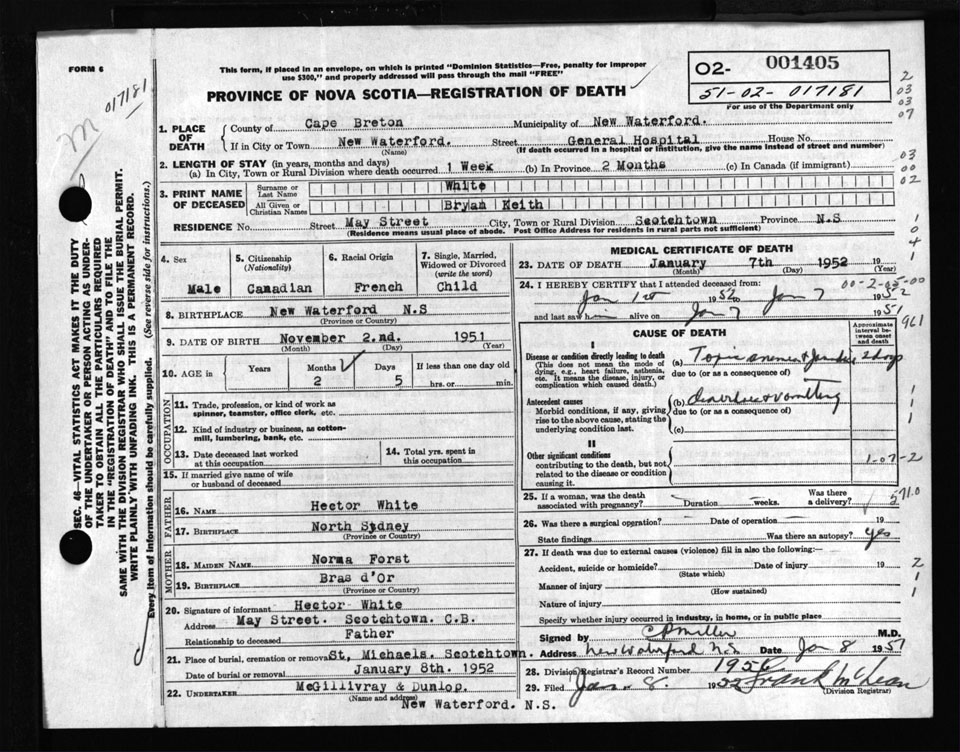 FORM 6
This form, if placed in an envelope, on which is printed "Dominion Statistics—Free, penalty for improper
use $300," and properly addressed will pass through the mail "FREE"
PROVINCE OF NOVA SCOTIA—REGISTRATION OF DEATH
02- 001405
51-02-017181
For use of the Department only
017181
M
2
03
03
07
03
00
02
1
0
4
1
SEC. 46—VITAL STATISTICS ACT MAKES IT THE DUTY
OF THE UNDERTAKER OR PERSON ACTING AS UNDER-
TAKER TO OBTAIN ALL THE PARTICULARS REQUIRED
IN THE "REGISTRATION OF DEATH" AND TO FILE THE
SAME WITH THE DIVISION REGISTRAR WHO SHALL ISSUE THE BURIAL PERMIT.
WRITE PLAINLY WITH UNFADING INK. THIS IS A PERMANENT RECORD.
Every item of information should be carefully supplied. (See reverse side for instructions.)
1. PLACE OF DEATH
County of Cape Breton Municipality of New Waterford.
If in City or Town New Waterford. Street General Hospital House No.
(Name) (If death occurred in a hospital or institution, give the name instead of street and number)
2. LENGTH OF STAY (in years, months and days)
(a) In City, Town or Rural Division where death occurred 1 Week (b) In Province 2 Months (c) In Canada (if immigrant)
3. PRINT NAME OF DECEASED
Surname or Last Name White
All Given or Christian Names Bryan Keith
RESIDENCE No. Street May Street City, Town or Rural Division Scotchtown Province N.S
(Residence means usual place of abode. Post Office Address for residents in rural parts not sufficient)
4. Sex
Male
5. Citizenship
(Nationality)
Canadian
6. Racial Origin
French
7. Single, Married,
Widowed or Divorced
(write the word)
Child
8. BIRTHPLACE New Waterford N.S
(Province or Country)
9. DATE OF BIRTH November 2.nd. 1951
(Month) (Day) (Year)
10. AGE in Years Months 2 Days 5 If less than one day old
hrs. or min.
OCCUPATION
11. Trade, profession, or kind of work as
spinner, teamster, office clerk, etc.
12. Kind of industry or business, as cotton-
mill, lumbering, bank, etc.
13. Date deceased last worked
at this occupation
14. Total yrs. spent in
this occupation
15. If married give name of wife
or husband of deceased
FATHER
16. NAME Hector White
17. BIRTHPLACE North Sydney
(Province or Country)
MOTHER
18. MAIDEN NAME Norma Forst
19. BIRTHPLACE Bras d'Or
(Province or Country)
20. Signature of informant Hector White
Address May Street. Scotchtown. C.B.
Relationship to deceased Father
21. Place of burial, cremation or removal St, Michaels, Scotchtown.
Date of burial or removal January 8th. 1952
22. UNDERTAKER McGillivray & Dunlop.
(Name and address)
New Waterford. N.S.
MEDICAL CERTIFICATE OF DEATH
23. DATE OF DEATH January 7th 1952 19
(Month) (Day) (Year)
00-2-05-00
24. I HEREBY CERTIFY that I attended deceased from:
Jan 1st 1952 to Jan 7 1952
and last saw him alive on Jan 7 1951
961
CAUSE OF DEATH
Approximate
interval be-
tween onset
and death
I
Disease or condition directly leading to death
(This does not mean the mode of
dying, e.g., heart failure, asthenia,
etc. It means the disease, injury, or
complication which caused death.)
(a) Toxic 2 days
due to (or as a consequence of)
Antecedent causes
Morbid conditions, if any, giving
rise to the above cause, stating the
underlying condition last.
(b) diarrhea & vomitting
due to (or as a consequence of)
(c)
1
1
1
II
Other significant conditions
contributing to the death, but not
related to the disease or condition
causing it.
1-07-2
25. If a woman, was the death
associated with pregnancy? Duration weeks. Was there
a delivery?
571.0
26. Was there a surgical operation? Date of operation 19
State findings Was there an autopsy? yes
27. If death was due to external causes (violence) fill in also the following:—
Accident, suicide or homicide? Date of injury 19
(State which)
Manner of injury
(How sustained)
Nature of injury
Specify whether injury occurred in industry, in home, or in public place
2
1
1
Signed by C P Miller M.D.
Address New Waterford N.S Date Jan 8 1951
28. Division Registrar's Record Number 1956
29. Filed Jan. 8. 1952 Frank McLean
(Division Registrar)